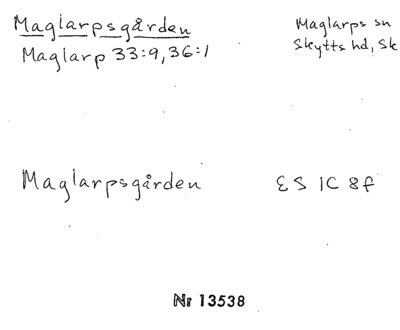 Maglarpsgården
Maglarps sn
Maglarp 33:9, 36:1
Skytts hd, Sk
Maglarpsgården
ES 1C 8f
Nr 13538